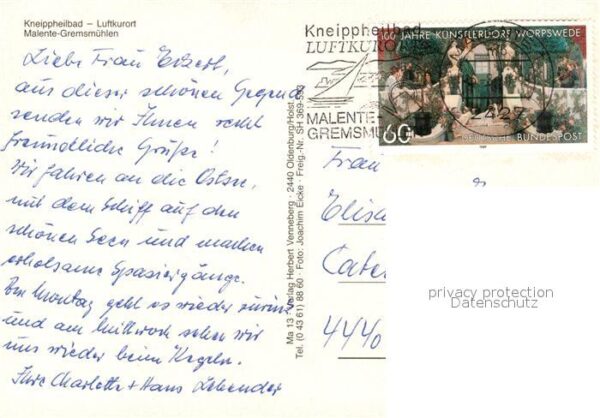 Kneippheilbad – Luftkurort
Malente-Gremsmühlen
Liebe Frau
aus dieser schönen Gegend
senden wir Ihnen recht
freundliche Grüße!
Wir fahren an die Ostsee,
mit dem Schiff auf den
schönen Seen und machen
erholsame Spaziergänge.
Am Montag geht es wieder zurück
und am Mittwoch sehen wir
uns wieder beim Kegeln.
Ihre Charlotte + Hans
Ma 13 Verlag Herbert Venneberg · 2440 Oldenburg/Holst.
Tel. (0 43 61) 88 60 · Foto: Joachim Eicke · Freig.-Nr. SH 369-593
Kneippheilbad
LUFTKURORT
MALENTE
GREMSMÜ
2427
100 JAHRE KÜNSTLERDORF WORPSWEDE
60
DEUTSCHE BUNDESPOST
1989
Frau
Elis
Cater
4440
privacy protection
Datenschutz